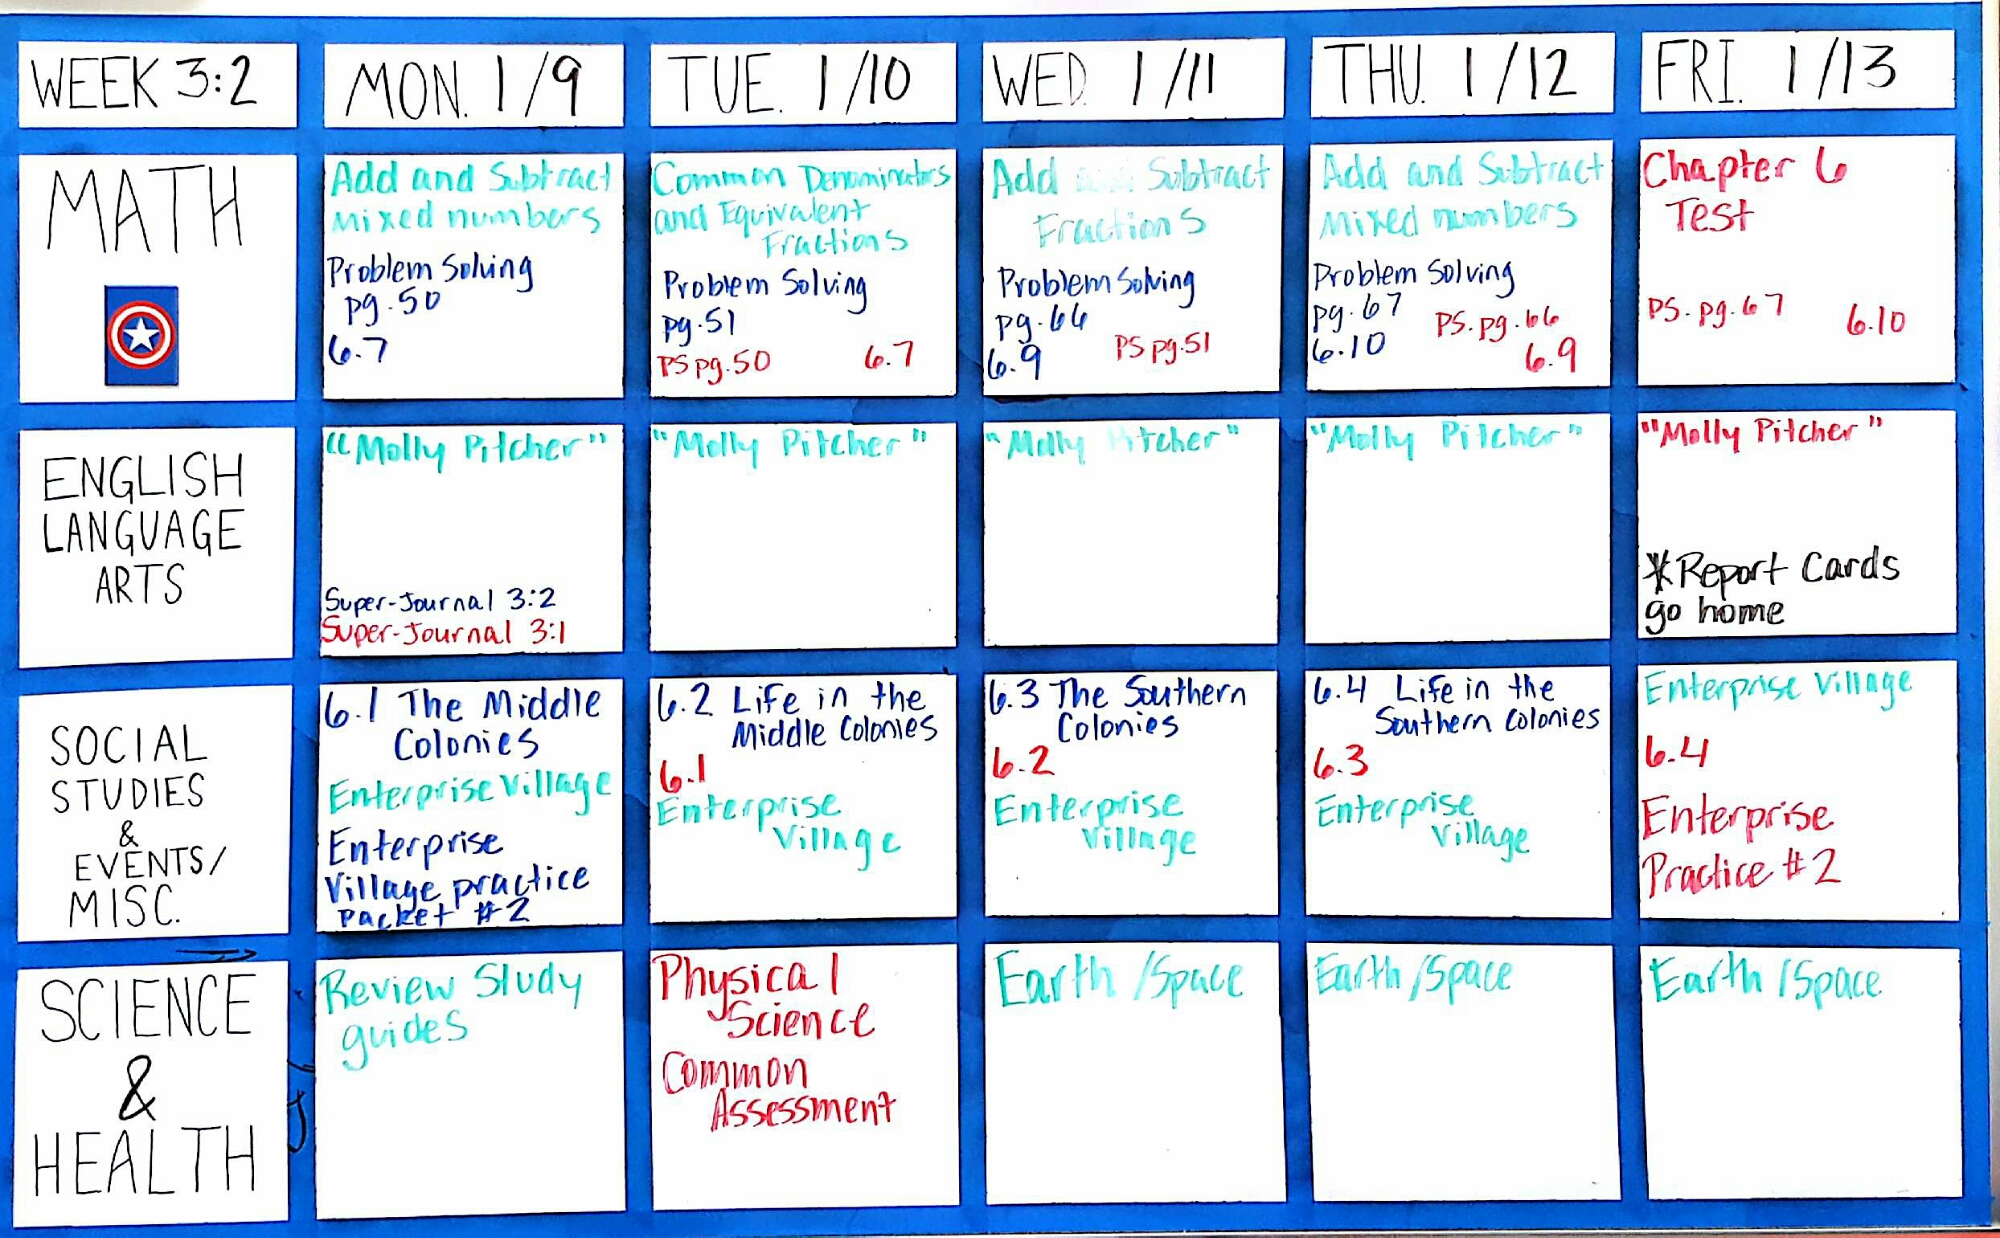 WEEK 3:2
MON. 1/9
TUE. 1/10
WED. 1/11
THU. 1/12
FRI. 1/13
MATH
Add and Subtract
Mixed numbers
Problem Solving
pg. 50
6.7
Common Denominators
and Equivalent
Fractions
Problem Solving
pg. 51
PS pg. 50 6.7
Add and Subtract
Fractions
Problem Solving
pg. 66
6.9 PS pg. 51
Add and Subtract
Mixed numbers
Problem Solving
pg. 67 PS. pg. 66
6.10 6.9
Chapter 6
Test
PS. pg. 67 6.10
ENGLISH
LANGUAGE
ARTS
"Molly Pitcher"
Super-Journal 3:2
Super-Journal 3:1
"Molly Pitcher"
"Molly Pitcher"
"Molly Pitcher"
"Molly Pitcher"
*Report Cards
go home
SOCIAL
STUDIES
&
EVENTS/
MISC.
6.1 The Middle
Colonies
Enterprise Village
Enterprise
Village practice
packet #2
6.2 Life in the
Middle Colonies
6.1
Enterprise
Village
6.3 The Southern
Colonies
6.2
Enterprise
Village
6.4 Life in the
Southern Colonies
6.3
Enterprise
Village
Enterprise Village
6.4
Enterprise
Practice #2
SCIENCE
&
HEALTH
Review Study
guides
Physical
Science
Common
Assessment
Earth/Space
Earth/Space
Earth/Space